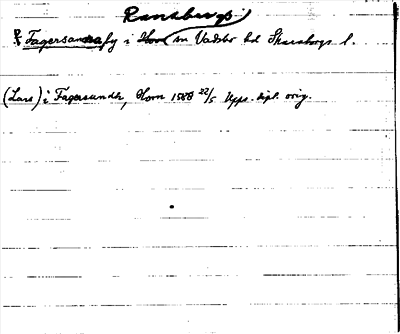 Ransbergs
Fagersannafly i Horn sn Vadsbo hd Skaraborgs l.
(Lars) i Fagersundh, Horn 1588 22/5 Upps. dipl. orig.